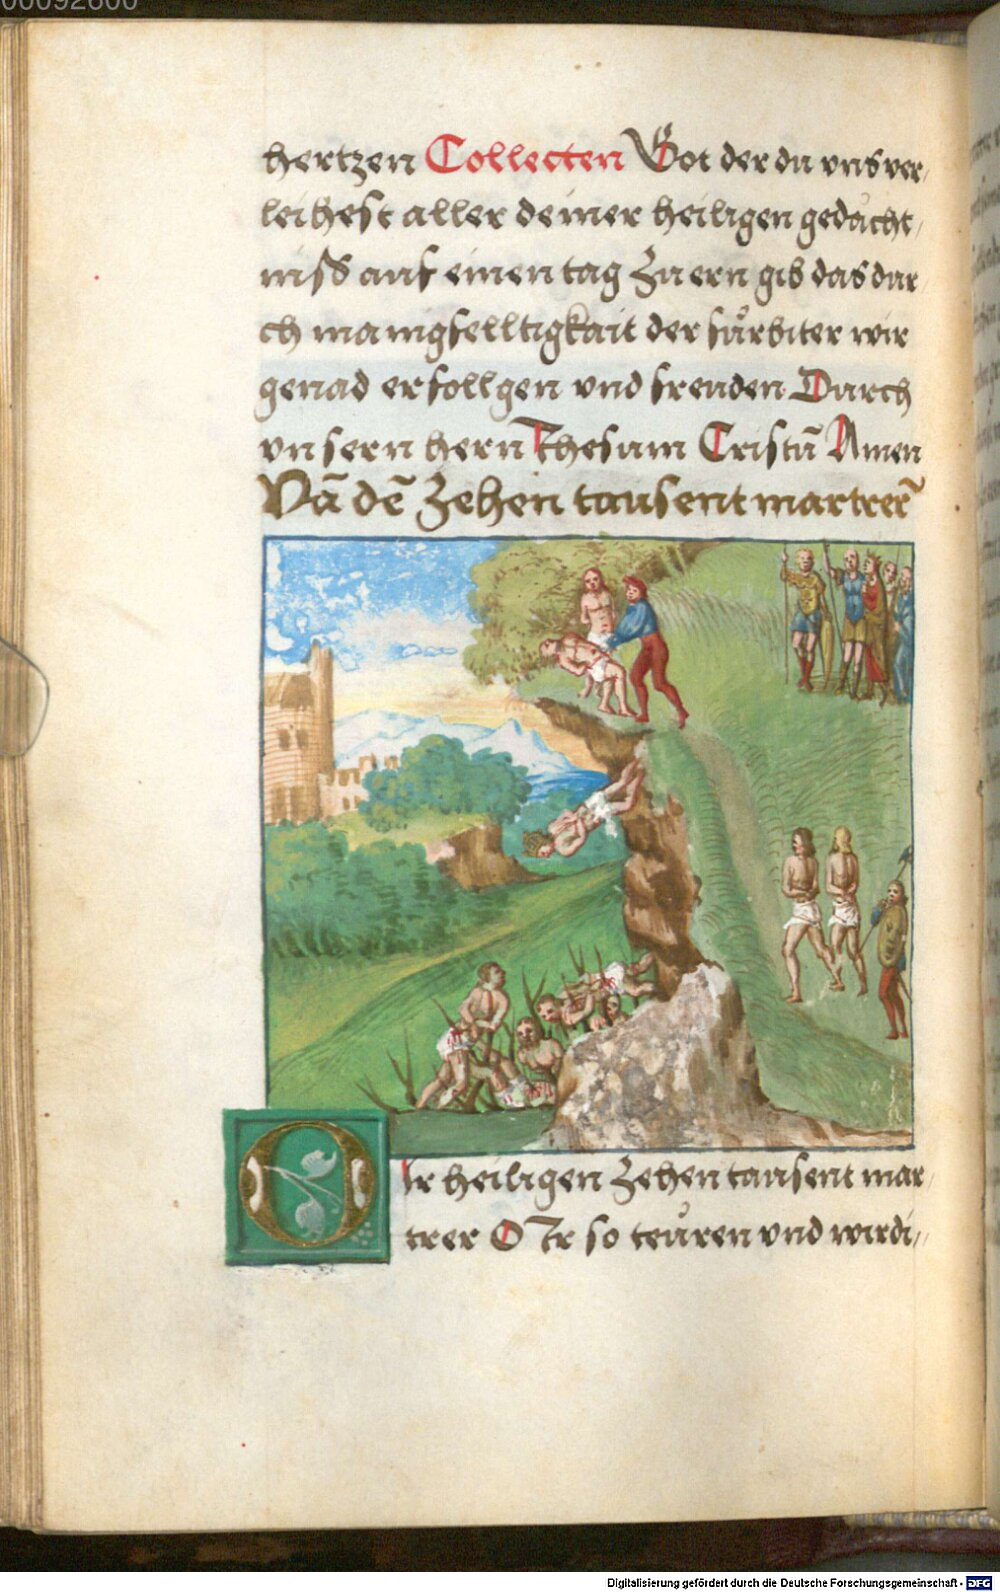 00092600
hertzen Collecten Got der du vns ver,
leihest aller deiner heiligen gedächt,
niss auf einen tag zu ern gib das dur
ch manigfelltigkait der fürbiter wir
genad erfollgen vnd freuden Durch
vnsern hern Jhesum Cristū Amen
Vā dē zehen tausent martrer̄
O Ir heiligen zehen tausent mar,
trer O Ir so teüren vnd wirdi,,
Digitalisierung gefördert durch die Deutsche Forschungsgemeinschaft - DFG